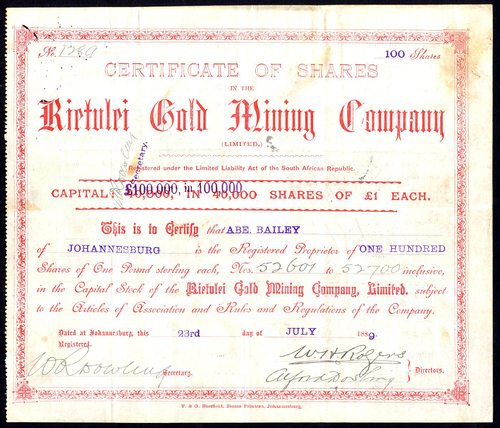 No. 1280 100 Shares
CERTIFICATE OF SHARES
IN THE
Rietvlei Gold Mining Company
(LIMITED.)
Registered under the Limited Liability Act of the South African Republic.
Secretary.
£100,000, in 100,000
CAPITAL: £40,000, IN 40,000 SHARES OF £1 EACH.
This is to Certify that ABE. BAILEY
of JOHANNESBURG is the Registered Proprietor of ONE HUNDRED
Shares of One Pound sterling each, Nos. 52601 to 52700 inclusive,
in the Capital Stock of the Rietvlei Gold Mining Company, Limited, subject
to the Articles of Association and Rules and Regulations of the Company.
Dated at Johannesburg, this 23rd day of JULY 1889.
Registered.
W R Dowling Secretary.
W H Rogers
Directors.